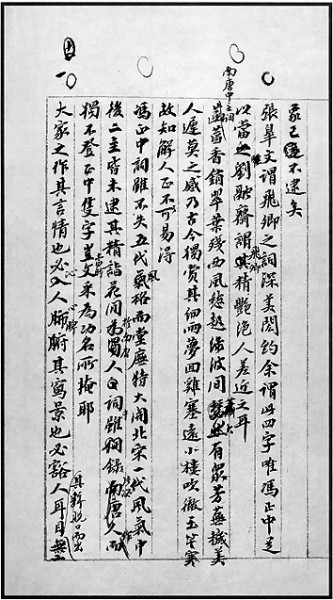 象已不逮矣
張皋文謂飛卿之詞深美閎約余謂此四字唯馮正中足
以當之劉融齋謂飛卿精豔絕人差近之耳
南唐中主詞菡萏香銷翠葉殘西風愁起綠波間大有眾芳蕪穢美
人遲莫之感乃古今獨賞其細雨夢回雞塞遠小樓吹徹玉笙寒
故知解人正不易得
馮正中詞雖不失五代風格而堂廡特大開北宋一代風氣中
後二主皆未逮其精詣花間於南唐人詞中雖錄張泌作而
獨不登正中隻字豈當時文采為功名所掩耶
大家之作其言情也必沁人心脾其寫景也必豁人耳目其辭脫口而出無